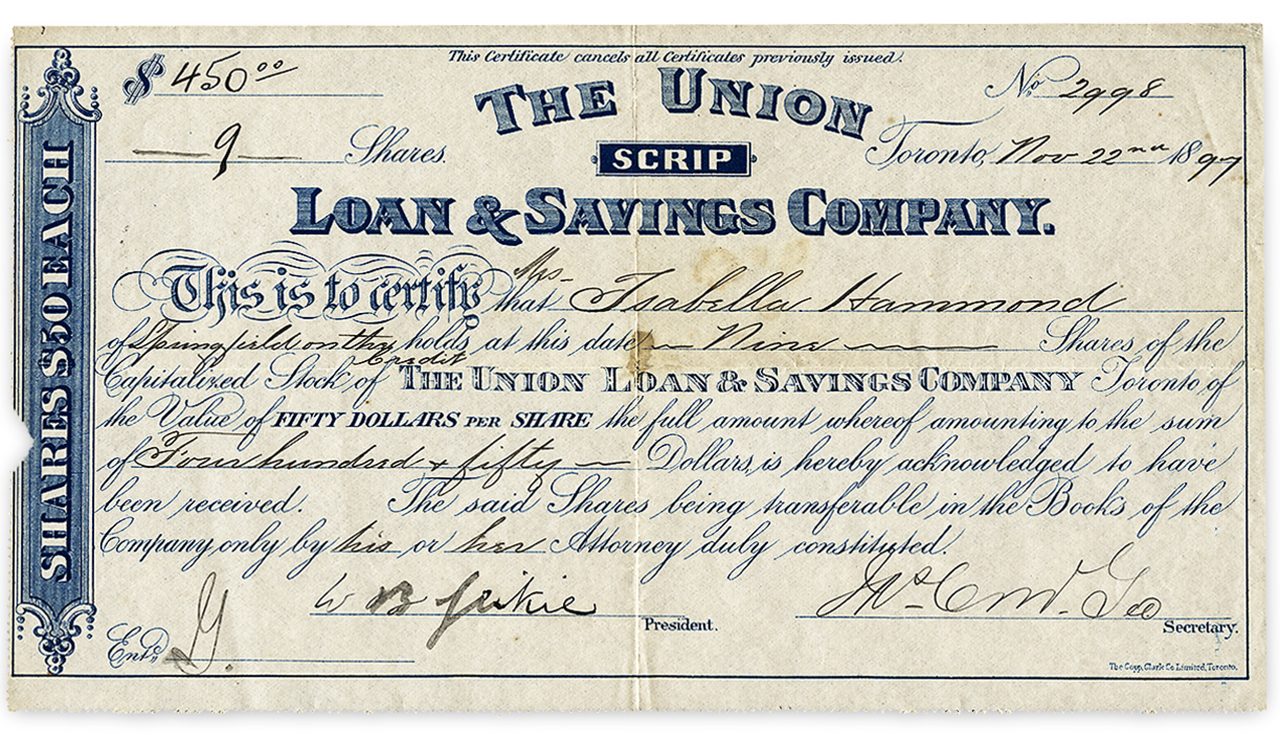 This Certificate cancels all Certificates previously issued.
$ 450 00
No. 2998
THE UNION
9 Shares.
SCRIP
Toronto, Nov 22nd 1897
LOAN & SAVINGS COMPANY.
SHARES $50 EACH
This is to certify that Mrs. Isabella Hammond
of Springfield on the Credit holds at this date Nine Shares of the
Capitalized Stock of THE UNION LOAN & SAVINGS COMPANY Toronto, of
the Value of FIFTY DOLLARS PER SHARE the full amount whereof amounting to the sum
of Four hundred & fifty Dollars, is hereby acknowledged to have
been received. The said Shares being transferable in the Books of the
Company only by his or her Attorney duly constituted.
W B Geikie
President.
Secretary.
Entd. G.
The Copp, Clark Co. Limited, Toronto.